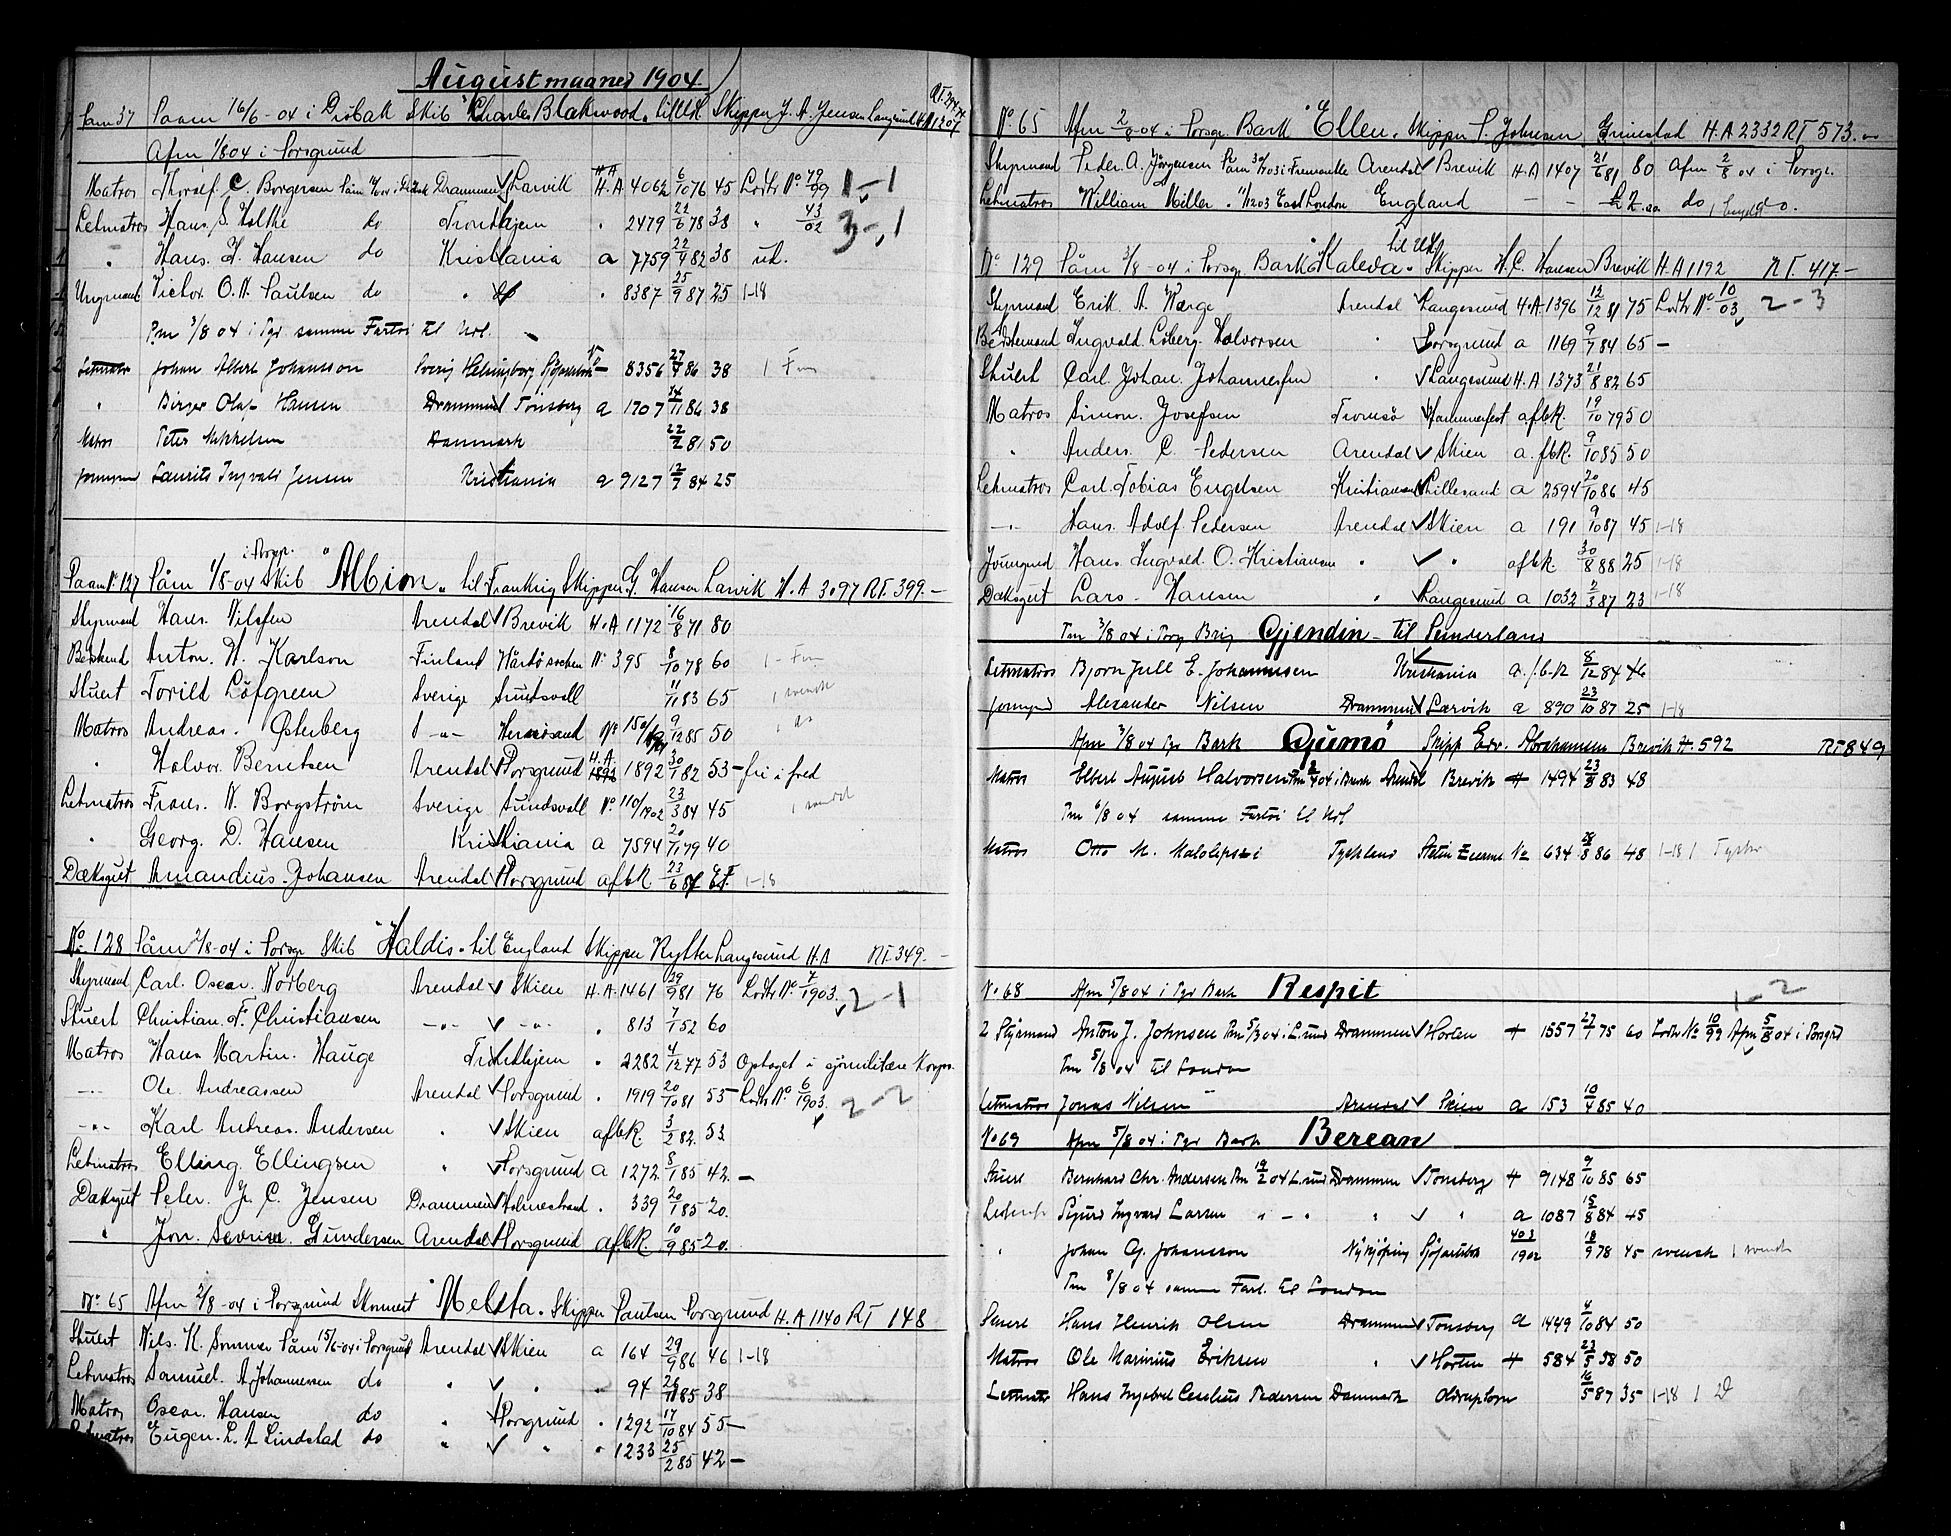 August maaned 1904
Paam 37 Paam 16/6-04 i Dröbak Skib "Charles Blakwood" til Utl. Skipper J. A. Jensen Langesund H.A 1207
Afm 1/8 04 i Porsgrund
Matros Thorolf C. Borgersen Drammen Larvik H.A 4062 6/10 76 45 Lods No 79/99 1-1
Letmatros Hans S. Holthe do Trondhjem " 2479 22/6 78 38 " 43/02 3-1
" Hans H. Hansen do Kristiania a 7759 22/4 82 38 ud.
Ungmand Victor O. N. Paulsen do " " 8387 25/9 87 25 1-18
Pm 3/8 04 i Pgr samme Fartöi til Utl.
Letmatros Johan Albert Johansson Sverig Helsingborg 8356 27/4 86 38 1
" Birger Olaf Hansen Drammen Tönsberg a 1707 14/11 86 38
Matros Peter Mikkelsen Danmark 22/2 81 50
Jungmand Laurits Ingvald Jensen Kristiania a 9127 12/7 84 25
i Porsgr.
Paam No 127 Påm 1/8-04 Skib "Albion" til Frankrig Skipper G. Hansen Larvik H.A 3097 RT. 399.-
Styrmand Hans Nilsen Arendal Brevik H.A 1172 16/8 71 80
Bestmand Anton. W. Karlson Finland No 395 8/10 78 60 1
Stuert Torild Löfgreen Sverige Sundsvall 11/11 83 65 1 svensk
Matros Andreas. Østerberg Hernösand No 150 9/12 85 50
" Halvor Berntsen Arendal Porsgrund H.A 1892 30/1 82 53 - fri i fred
Letmatros Frans. N. Borgström Sverige Sundsvall No 110/1902 23/3 84 45 1 svensk
" Georg. D. Hansen Kristiania a 7594 20/11 79 40
Dæksgut Amandius Johansen Arendal Porsgrund afbk 23/6 1-18
No 128 Påm 2/8-04 i Porsgr Skib "Haldis" til England Skipper Rytter Langesund H.A RT. 349.-
Styrmand Carl. Oscar. Norberg Arendal Skien H.A. 1461 29/9 81 76 Lods No 7/1903. 2-1
Stuert Christian. F. Christiansen -"- -"- " 813 7/1 52 60
Matros Hans Martin. Hauge Trondhjem " 2282 4/12 77 53 Optaget i sjömilitære Korps.
-"- Ole Andreassen Arendal Porsgrund " 1919 20/10 81 53 Lods No 6/1903. 2-2
-"- Karl Andreas. Andersen " Skien afbk. 3/2 82. 53.
Letmatros Elling. Ellingsen " Porsgrund a 1272 8/1 85 42.-
Dæksgut Peter. Jr. C. Jensen Drammen Holmestrand " 339 20/1 85 20.
" Jon. Severin. Gundersen Arendal Porsgrund afbk. 10/9 85 20.
No 65 Afm 2/8-04 i Porsgrund Skonnert "Melita" Skipper Paulsen Porsgrund H.A 1140 RT 148
Stuert Nils. K. Sommer Påm 15/6-04 i Porsgrund Arendal Skien a 164 29/9 86 46 1-18
Letmatros Samuel. A. Johannesen do " " " 94 26/11 85 38
Matros Oscar. Hansen do " Porsgrund " 1292 17/10 84 55-
Letmatros Eugen. L. A Lindstad do " " " 1233 25/2 85 42-
No 65 Afm 2/8 04 i Porsgr. Bark "Ellen" Skipper P. Johnsen Grimstad H.A 2332 RT 573.
Styrmand Peder. A. Jörgensen Påm 30/7 03 i Fremantle Arendal Brevik H.A 1407 21/6 81 80 Afm 2/8 04 i Porsgr.
Letmatros William Miller " 11/12 03 East London England - - do do.
No 129 Påm 3/8-04 i Porsgr Bark "Kaleva" til Utl. Skipper H. C. Hansen Brevik H.A 1192 RT. 417.-
Styrmand Erik. A. Wærge Arendal Langesund H.A 1396 12/12 81 75 Lods No 10/03 2-3
Bestemand Ingvald. Löberg. Halvorsen " Porsgrund a 1169 9/7 84 65-
Stuert Carl. Johan. Johannessen " Langesund H.A 1373 21/8 82 65
Matros Simon. Josefsen Tromsö Hammerfest afbk. 19/10 79 50
" Anders. C. Pedersen Arendal Skien a. fbk. 9/10 85 50
Letmatros Carl. Tobias Engelsen Kristiansand Lillesand a 2594 20/10 86 45
-"- Hans. Adolf. Pedersen Arendal Skien a 191 9/10 87 45 1-18
Jungmd Hans. Ingvald. O. Kristiansen " " afbk. 30/8 88 25 1-18
Dæksgut Lars. Hansen " Langesund a 1032 2/3 87 23 1-18
Pm 3/8 04 i Porsg Brig Gjendin - til Sunderland
Letmatros Bjorn Juell E. Johannessen Kristiania a.f.b.k 8/12 84 46
Jungmd Alexander Nilsen Drammen Larvik a 890 23/10 87 25 1-18
Afm 3/8 04 Pgr Bark Gjumö Skipp Edv. Abrahamsen Brevik H. 592 RT 849
Matros Elbert August Halvorsen Arendal Brevik H 1494 23/8 83 48
Pm 6/8 04 samme Fartöi til Utl
Matros Otto M. Malolepszi Tyskland Stettin No 634 28/8 86 48 1-18 1 Tysker
No 68 Afm 5/8 04 i Pgr Bark Respit 1-2
2 Styrmand Anton J. Johnsen Drammen Horten H 1557 27/7 75 60 Lods No 10/99 Afm 5/8 04 i Porsgrd
Pm 5/8 04 til London
Letmatros Jonas Nilsen Arendal Skien a 153 10/4 85 40
No 69 Afm 5/8 04 i Pgr Bark Berean
Stuert Bernhard Chr. Andersen Pm 19/2 04 L.sund Drammen Tonsberg H 9148 9/10 85 65
Sigurd Ingvard Larsen " - " " " a 1087 15/8 84 45
" Johan G. Johansson Nykjöping Sjöfartsbok 403/1902 18/9 78 45 svensk 1 svensk
Pm 8/8 04 samme Fart. til London
Hans Henrik Olsen Drammen Tonsberg a 1449 4/10 84 50
Matros Ole Marinius Eriksen " Horten H 584 23/5 58 50
Letmatr Hans Ingebret Cecelius Pedersen Danmark 16/5 87 35 1-18 1 D